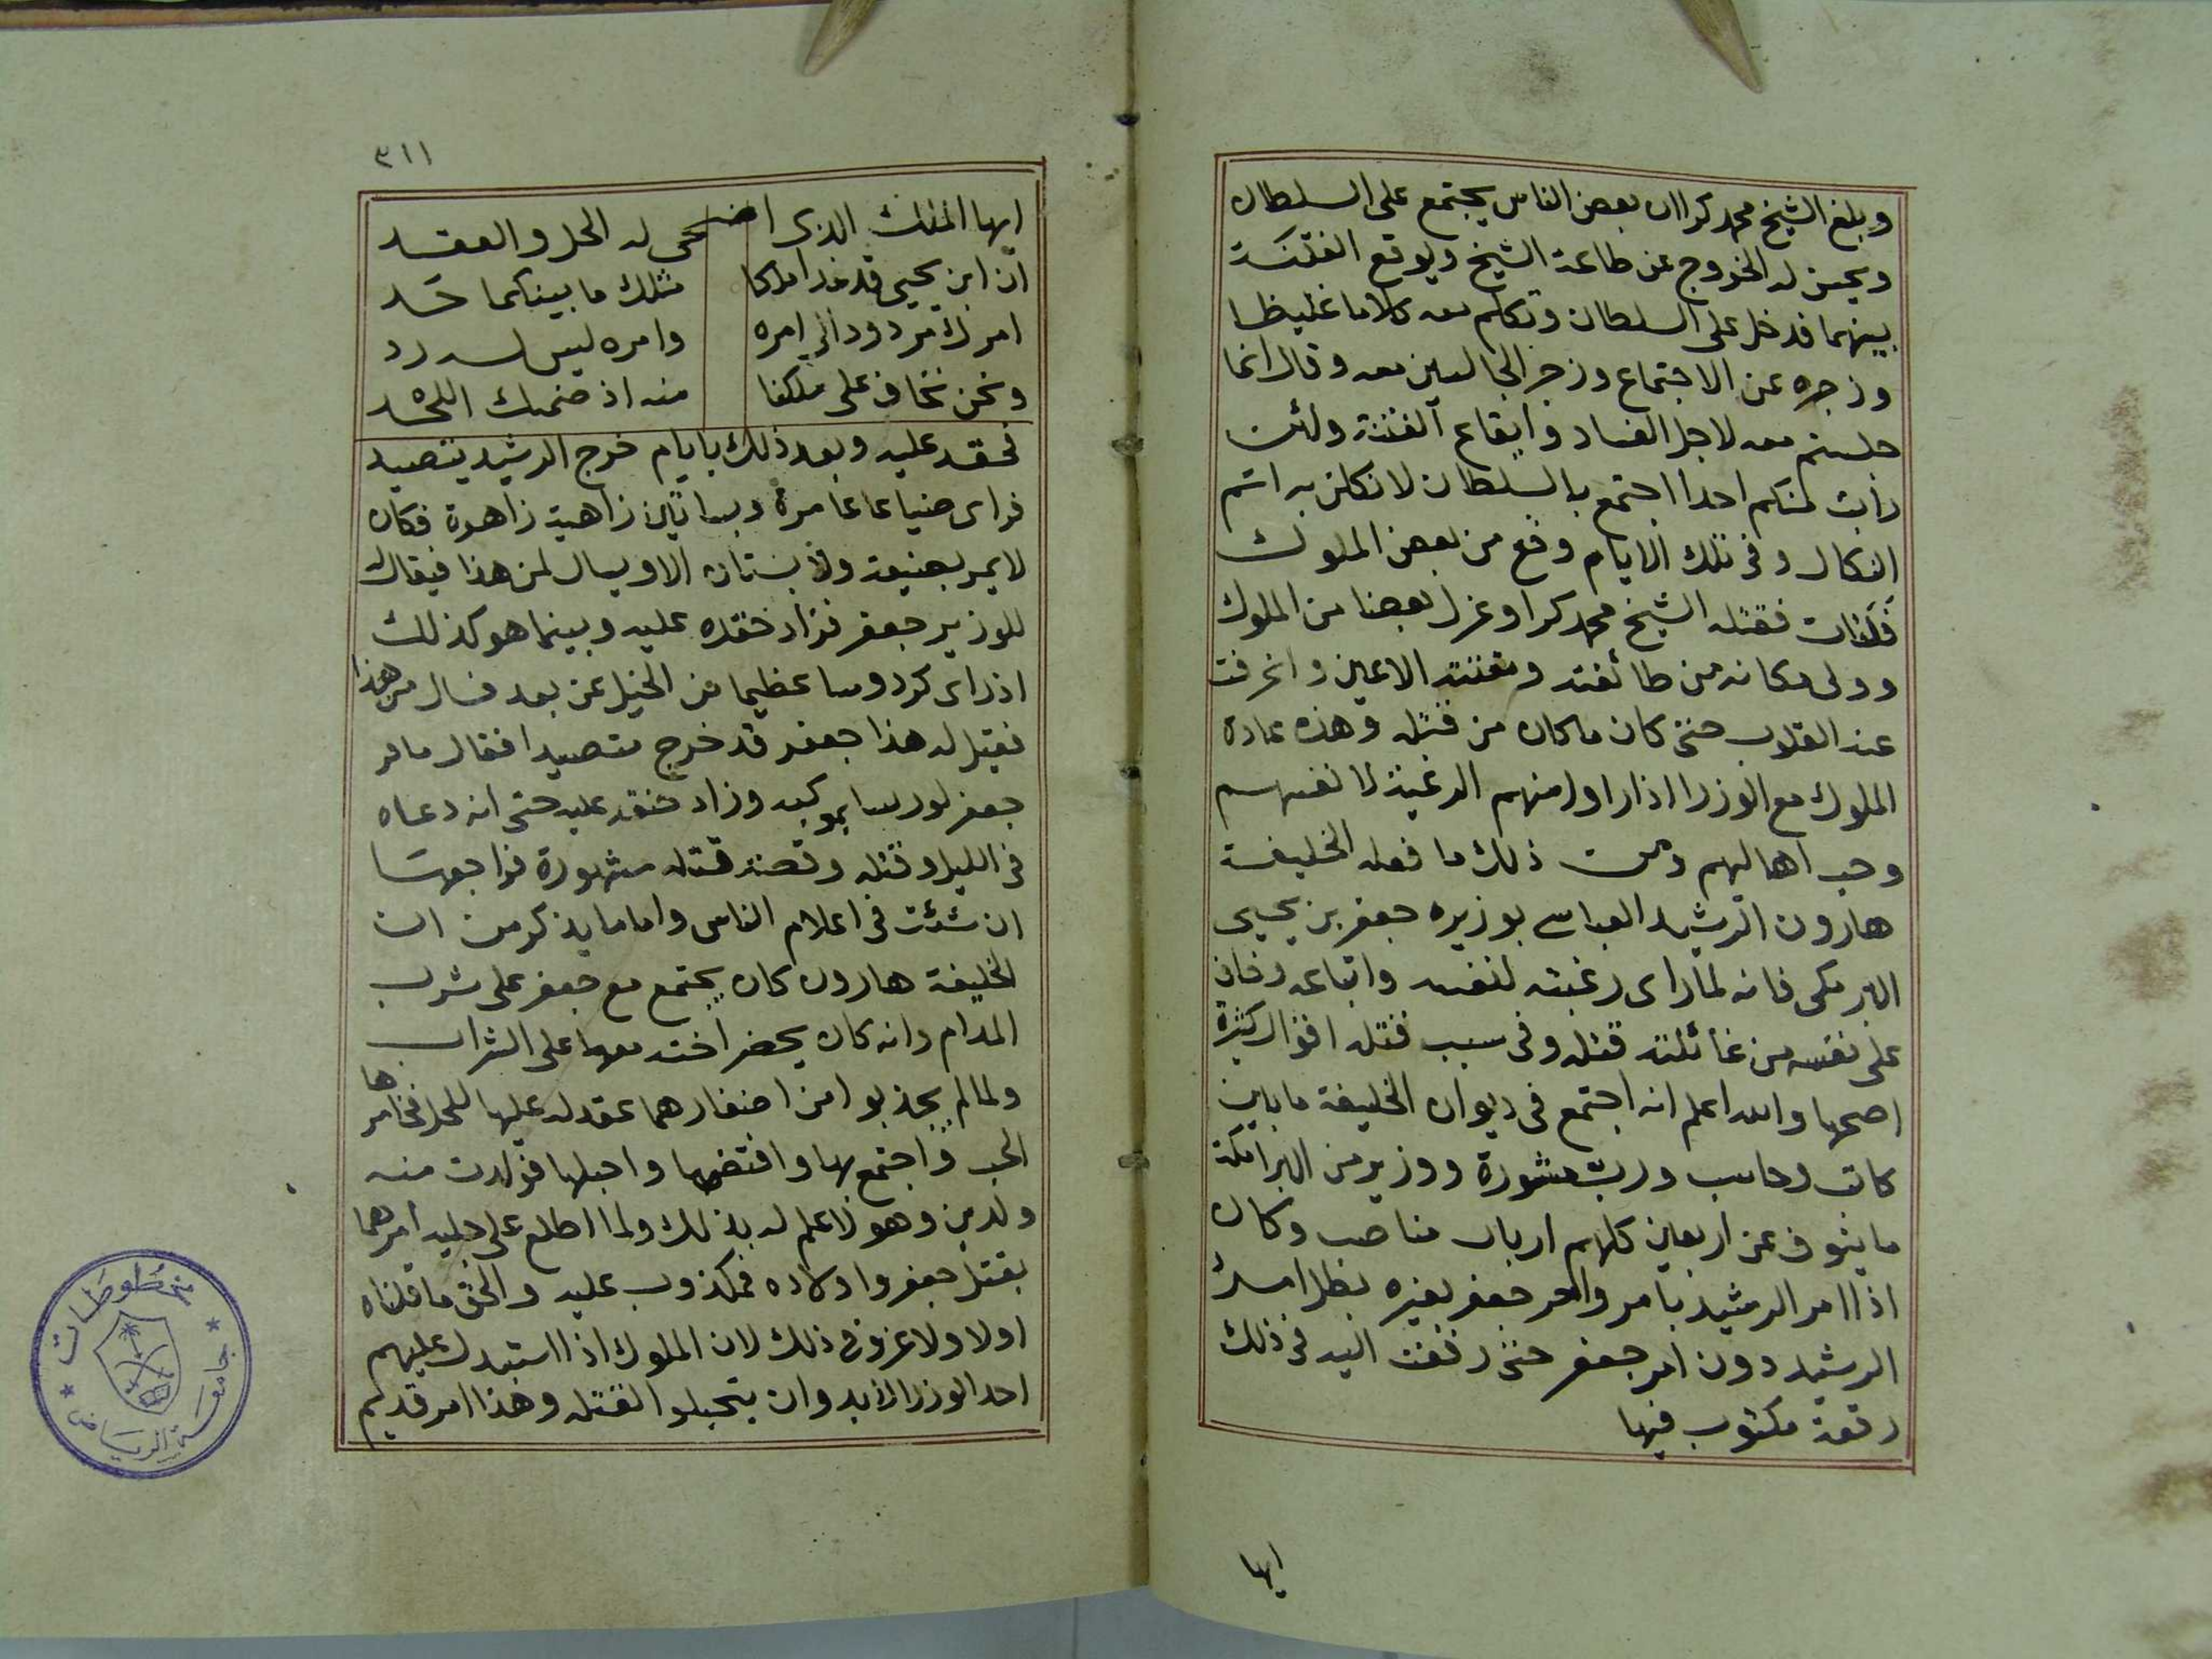 وبلغ الشيخ محمد كرا ان بعض الناس يجتمع على السلطان
ويحسن له الخروج عن طاعة الشيخ ويوقع الفتنة
بينهما فدخل على السلطان وتكلم معه كلاما غليظا
وزجره عن الاجتماع وزجر الجالسين معه وقال انما
جلستم معه لاجل الفساد وايقاع الفتنة ولئن
رايت منكم احدا اجتمع بالسلطان لانكلن به اشم
النكال وفى تلك الايام وقع من بعض الملوك
فلتات فقتله الشيخ محمد كرا وعزل بعضا من الملوك
وولى مكانه من طائفته ومقتته الاعين وانحرفت
عنه القلوب حتى كان ما كان من قتله وهذه عادة
الملوك مع الوزرا اذا راوا منهم الرغبة لانفسهم
وحب اهاليهم ومن ذلك ما فعله الخليفة
هارون الرشيد العباسى بوزيره جعفر بن يحيى
البرمكى فانه لما راى رغبته لنفسه واتباعه وخاف
على نفسه من غائلته قتله وفى سبب قتله اقوال كثيرة
اصحها والله اعلم انه اجتمع فى ديوان الخليفة ما بين
كاتب وحاسب ورب مشورة ووزير من البرامكة
ما ينوف عن اربعين كلهم ارباب مناصب وكان
اذا امر الرشيد بامر وامر جعفر بغيره بطل امر
الرشيد دون امر جعفر حتى رفعت اليه فى ذلك
رقعة مكتوب فيها
ايها
٣١١
ايها الملك الذى اضحى له الحل والعقد
ان ابن يحيى قد غدا مالكا مثلك ما بينكما حد
امرك مردود الى امره وامره ليس له رد
ونحن نخاف على ملكنا منه اذ ضمك اللحد
فحقد عليه وبعد ذلك بايام خرج الرشيد يتصيد
فراى ضياعا عامرة وبساتين زاهية زاهرة فكان
لا يمر بضيعة ولا بستان الا ويسال لمن هذا فيقال
للوزير جعفر فزاد حقده عليه وبينما هو كذلك
اذ راى كردوسا عظيما من الخيل عن بعد فسال من هذا
فقيل له هذا جعفر قد خرج متصيدا فقال ما مر
جعفر لورسا بموكبه وزاد حنقه عليه حتى انه دعاه
فى الليل وقتله وقصة قتله مشهورة فراجعها
ان شئت فى اعلام الناس واما ما يذكر من ان
الخليفة هارون كان يجتمع مع جعفر على شرب
المدام وانه كان يحضر اخته معهما على الشراب
ولما لم يجد بدا من احضارهما عقد له عليها للحل فخامرها
الحب واجتمع بها وافتضها واحبلها فولدت منه
ولدين وهو لا علم له بذلك ولما اطلع على جلية امرهما
بقتل جعفر واولاده فمكذوب عليه والحق ما قلناه
اولا ولا غرو فى ذلك لان الملوك اذا استبد عليهم
احد الوزرا لا بد وان يتحيلوا لقتله وهذا امر قديم
مخطوطات
جامعة الرياض